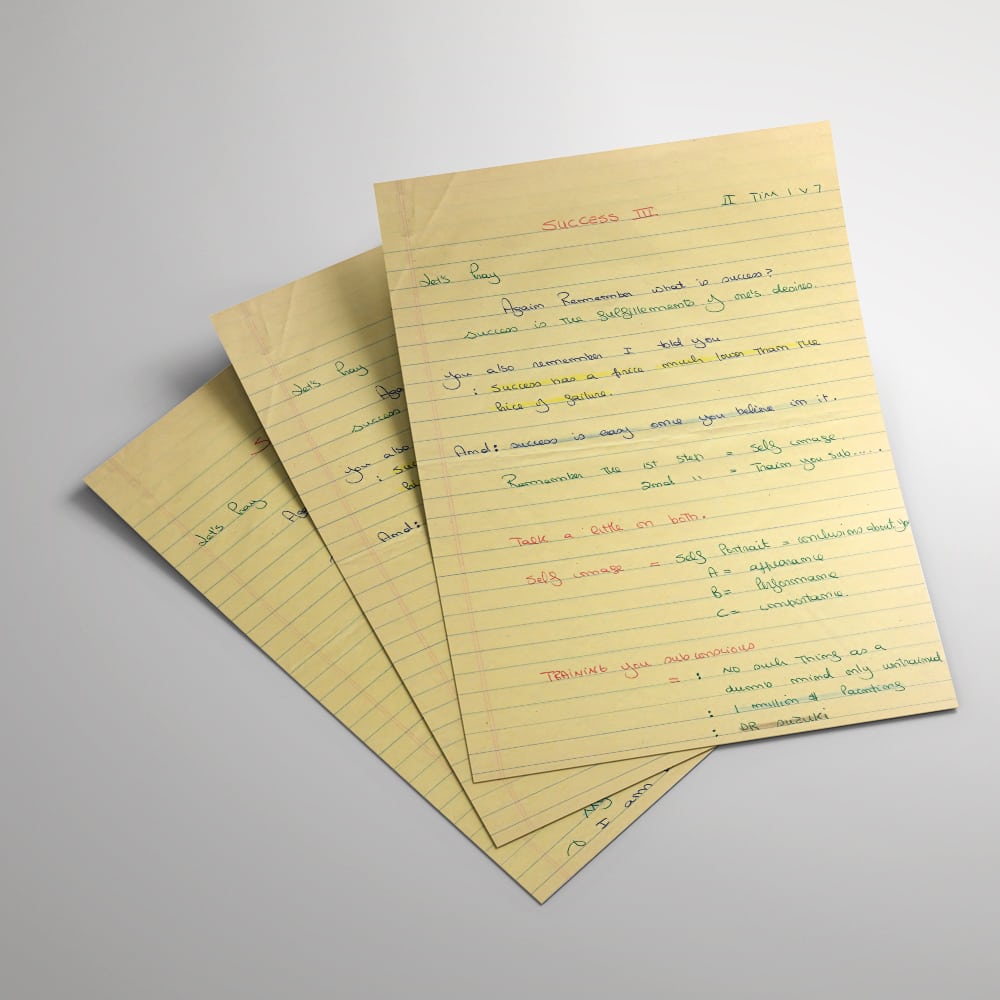 SUCCESS III.
II TIM 1 V 7
Let's Pray
Again Remember what is success?
success is the fulfillements of one's desires.
you also remember I told you
: Success has a price much lower Than The
Price of failure.
And: success is easy once you believe in it.
Remember The 1st step = self image.
2nd " = Train you sub.....
Talk a little on both.
Self image = Self Portrait = conclusions about yo
A = appearance
B = Performance
C = importance.
TRAINING you subconscious
= : NO such Thing as a
dumb mind only untrained
: 1 million $
: DR SUZUKI
Let's Pray
Aga
success
you also
: Suc
And:
S
Let's Pray
Ag
I am